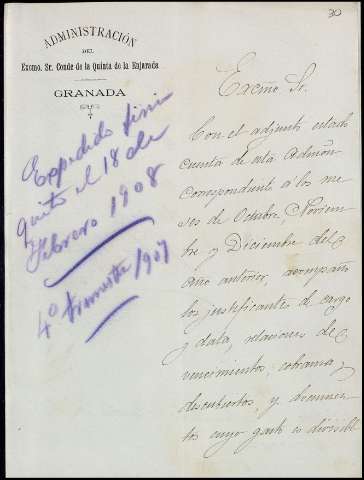 30
ADMINISTRACIÓN
DEL
Excmo. Sr. Conde de la Quinta de la Enjarada
GRANADA
Expedido fini
quito el 18 de
febrero 1908
4º trimestre 1907
Excmo Sr.
Con el adjunto estado
cuenta de esta Admón
correspondiente a los me
ses de Octubre Noviem
bre y Diciembre del
año anterior, acompaño
los justificantes de cargo
y data, relaciones de
vencimientos, cobranza,
descubiertos, y documen
tos cuyo gasto es divisibl